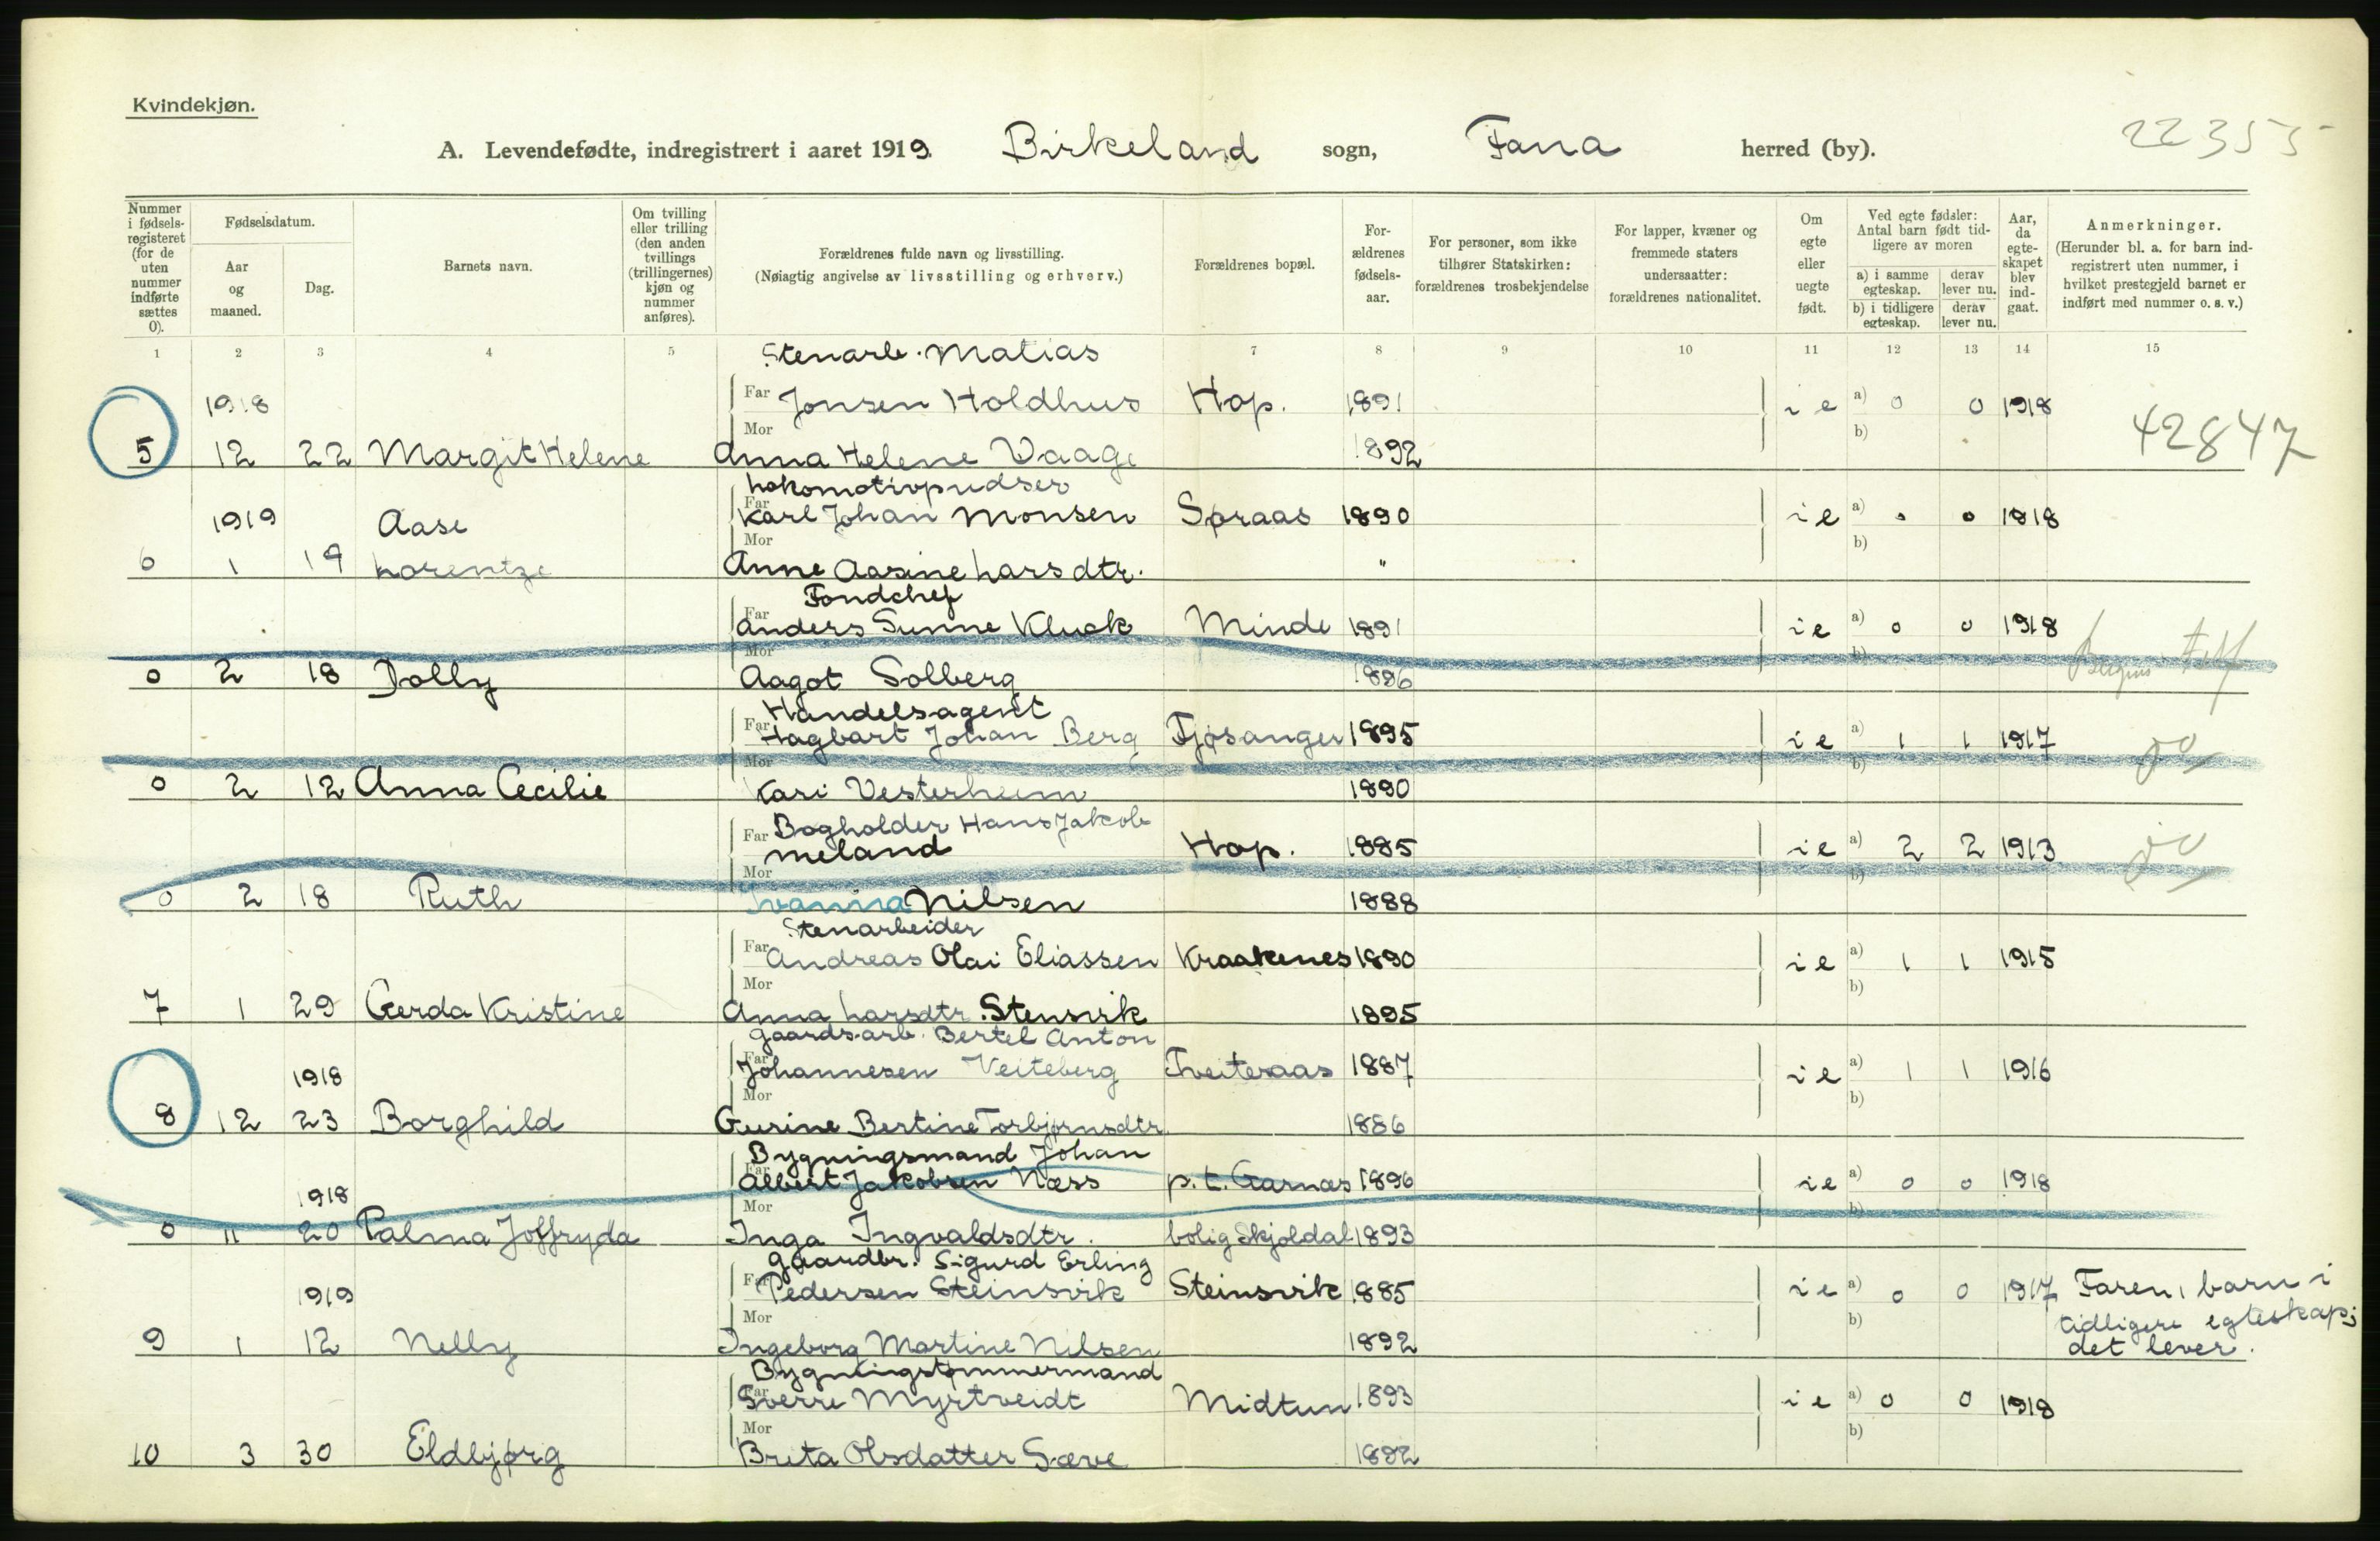 Kvindekjøn.
22355
A. Levendefødte, indregistrert i aaret 1919. Birkeland sogn, Fana herred (by).
Nummer i fødsels-registeret (for de uten nummer indførte sættes 0).
Fødselsdatum.
Aar og maaned.
Dag.
Barnets navn.
Om tvilling eller trilling (den anden tvillings (trillingernes) kjøn og nummer anføres).
Forældrenes fulde navn og livsstilling.
(Nøiagtig angivelse av livsstilling og erhverv.)
Forældrenes bopæl.
For-ældrenes fødsels-aar.
For personer, som ikke tilhører Statskirken: forældrenes trosbekjendelse
For lapper, kvæner og fremmede staters undersaatter: forældrenes nationalitet.
Om egte eller uegte født.
Ved egte fødsler: Antal barn født tid-ligere av moren
a) i samme egteskap. derav lever nu.
b) i tidligere egteskap. derav lever nu.
Aar, da egte-skapet blev ind-gaat.
Anmerkninger.
(Herunder bl. a. for barn ind-registrert uten nummer, i hvilket prestegjeld barnet er indført med nummer o. s. v.)
1 2 3 4 5 7 8 9 10 11 12 13 14 15
Stenarb. Matias
1918 Far Jonsen Holdhus Hop. 1891 i e a) 0 0 1918
Mor b) 42847
5 12 22 Margit Helene Anna Helene Vaage 1892
Lokomotivpudser
1919 Aase Far Karl Johan Monsen Søraas 1890 i e a) 0 0 1918
Mor b)
6 1 19 Lorentze Anne Aasine Larsdtr. "
Fondchef
Far Anders Sunne Kluok Minde 1891 i e a) 0 0 1918
Mor b) Bergens
0 2 18 Dolly Aagot Solberg 1886
Handelsagent
Far Hagbart Johan Berg Fjøsanger 1895 i e a) 1 1 1917
Mor b) do
0 2 12 Anna Cecilie Kari Vesterheim 1890
Far Bogholder Hans Jakob
Meland Hop. 1885 i e a) 2 2 1913 do
Mor b)
0 2 18 Ruth Ivanna Nilsen 1888
Stenarbeider
Far Andreas Olai Eliassen Kraakenes 1890 i e a) 1 1 1915
Mor b)
7 1 29 Gerda Kristine Anna Larsdtr. Stensvik 1895
Gaardsarb. Bertel Anton
1918 Far Johannesen Veiteberg Tveiteraas 1887 i e a) 1 1 1916
Mor b)
8 12 23 Borghild Gurine Bertine Torbjørnsdtr. 1886
Bygningsmand Johan
1918 Far Albert Jakobsen Næss p.t. Garnæs 1896 i e a) 0 0 1918
Mor b)
0 11 20 Palma Joffryda Inga Ingvaldsdtr. bolig Skjoldal 1893
Gaardbr. Sigurd Erling
1919 Far Pedersen Steinsvik Steinsvik 1885 i e a) 0 0 1917 Faren 1 barn i
Mor b) tidligere egteskap;
9 1 12 Nelly Ingeborg Martine Nilsen 1892 det lever.
Bygningstømmermand
Far Sverre Myrtveidt Midtun 1893 i e a) 0 0 1918
Mor b)
10 3 30 Eldbjørg Brita Olsdatter Sæve 1892